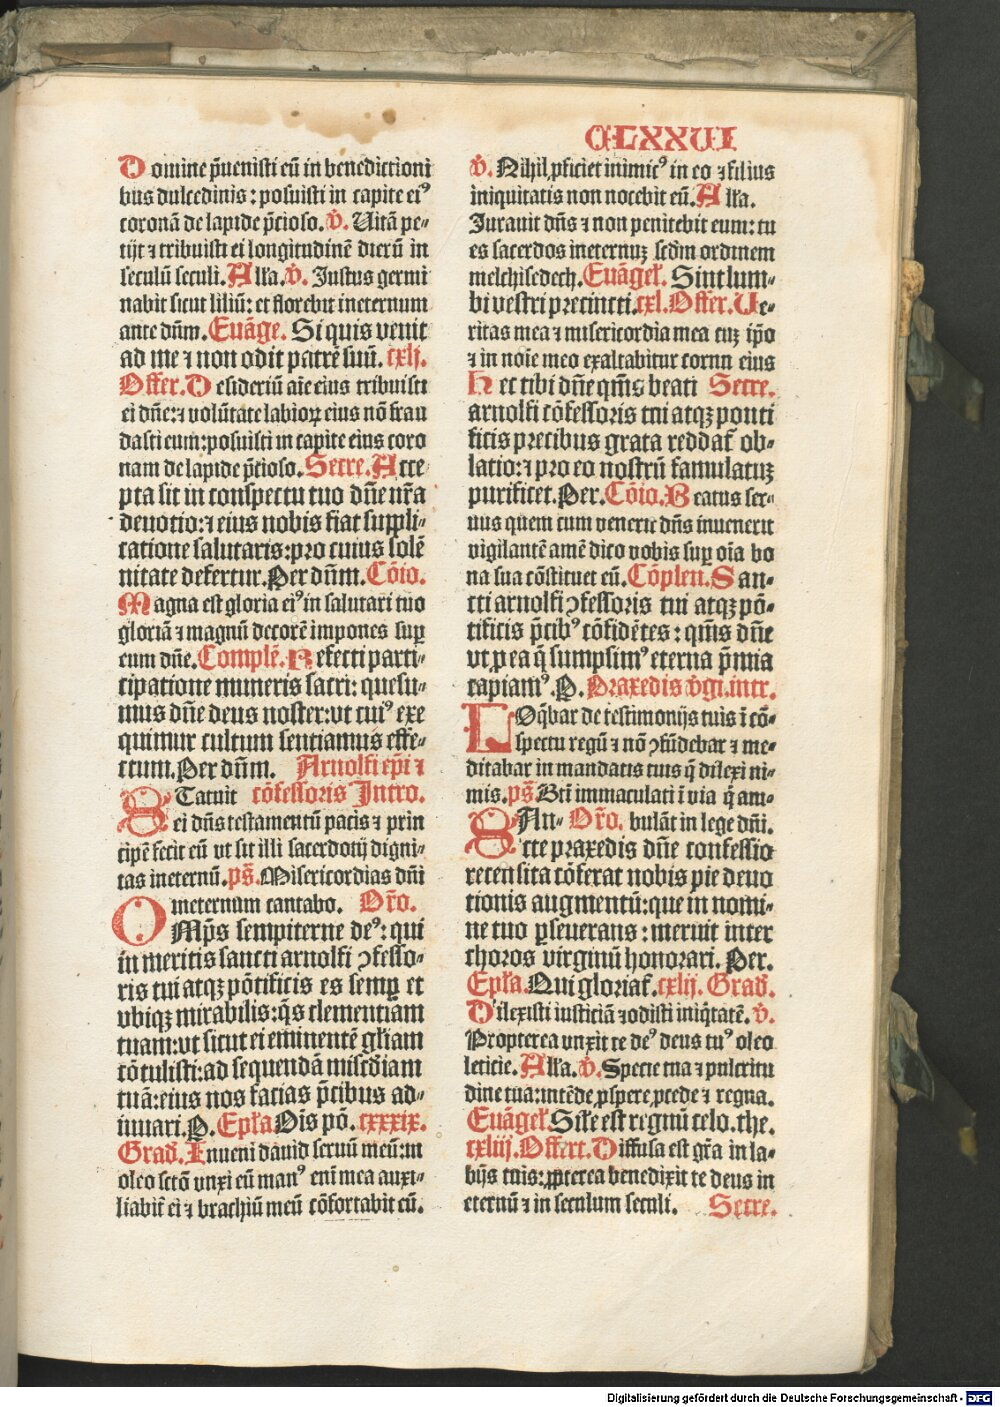 CLXXVI
Domine p̄uenisti eū in benedictioni
bus dulcedinis : posuisti in capite eiꝰ
coronā de lapide p̄cioso. v̄. Uitā pe⸗
tijt ⁊ tribuisti ei longitudinē dierū in
seculū seculi. Alľa. v̄. Justus germi
nabit sicut liliū: et florebit ineternum
ante dn̄m. Euāge. Si quis venit
ad me ⁊ non odit patrē suū. cxlj.
Offer. Desideriū aīe eius tribuisti
ei dn̄e:⁊ volūtate labioꝝ eius nō frau
dasti eum:posuisti in capite eius coro
nam de lapide p̄cioso. Secre. Acce
pta sit in conspectu tuo dn̄e nr̄a
deuotio:⁊ eius nobis fiat suppli⸗
catione salutaris:pro cuius solē
nitate defertur. Per dn̄m. Cōio.
Magna est gloria eiꝰ in salutari tuo
gloriā ⁊ magnū decorē impones sup̲
eum dn̄e. Complē. Refecti parti⸗
cipatione muneris sacri: quesu⸗
mus dn̄e deus noster:vt cuiꝰ exe
quimur cultum sentiamus effe⸗
ctum. Per dn̄m. Arnolfi ep̄i ⁊
Statuit confessoris Intro.
ei dn̄s testamentū pacis ⁊ prin
cipē fecit eū vt sit illi sacerdotij digni⸗
tas ineternū. ps̄. Misericordias dn̄i
ineternum cantabo. Or̄o.
OMp̄s sempiterne deꝰ: qui
in meritis sancti arnolfi ꝯfesso⸗
ris tui atqꝫ pōtificis es semp̲ et
vbiqꝫ mirabilis:q̄s clementiam
tuam:vt sicut ei eminentē gľiam
cōtulisti:ad sequendā mis̄diam
tuā:eius nos facias p̄cibus ad⸗
iuuari. P. Epľa Dis pō. cxxxix.
Grad̄. Inueni dauid seruū meū:in
oleo sctō vnxi eū manꝰ enī mea auxi⸗
liabit̄ ei ⁊ brachiū meū cōfortabit eū.
v̄. Nihil ꝓficiet inimicꝰ in eo ⁊ filius
iniquitatis non nocebit eū. Alľa.
Jurauit dn̄s ⁊ non penitebit eum: tu
es sacerdos ineternuꝫ scdm̄ ordinem
melchisedech. Euāgeľ. Sint lum⸗
bi vestri precincti. cxl. Offer. Ve⸗
ritas mea ⁊ misericordia mea cuꝫ ip̄o
⁊ in noīe meo exaltabitur cornu eius
Hec tibi dn̄e qm̄s beati Secre.
arnolfi cōfessoris tui atqꝫ ponti
ficis precibus grata reddat̄ ob⸗
latio:⁊ pro eo nostrū famulatuꝫ
purificet. Per. Cōio. Beatus ser⸗
uus quem cum venerit dn̄s inuenerit
vigilantē amē dico vobis sup̲ oīa bo
na sua cōstituet eū. Cōplen. San⸗
cti arnolfi ꝯfessoris tui atqꝫ pō⸗
tificis p̄cibꝰ cōfidētes : qm̄s dn̄e
vt ꝑ ea q̄ sumpsimꝰ eterna p̄mia
capiamꝰ. P. Praxedis v̄gi. intr.
LOq̄bar de testimonijs tuis ī cō⸗
spectu regū ⁊ nō ꝯfūdebar ⁊ me⸗
ditabar in mandatis tuis q̄ dilexi ni⸗
mis. ps̄. Bt̄i immaculati ī via q̄ am⸗
SAn⸗ Or̄o. bulāt in lege dn̄i.
cte praxedis dn̄e confessio
recensita cōferat nobis pie deuo
tionis augmentū:que in nomi⸗
ne tuo ꝑseuerans : meruit inter
choros virginū honorari. Per.
Epľa. Qui gloriat̄. cxlij. Grad̄.
Dilexisti iusticiā ⁊ odisti iniq̄tatē. v̄.
Propterea vnxit te deꝰ deus tuꝰ oleo
leticie. Alľa. v̄. Specie tua ⁊ pulcritu
dine tua:intēde,ꝓspere,ꝓcede ⁊ regna.
Euāgeľ. Siľe est regnū celo. the.
cxliij. Offert. Diffusa est gr̄a in la⸗
bijs tuis: ꝓpterea benedixit te deus in
eternū ⁊ in seculum seculi. Secre.
Digitalisierung gefördert durch die Deutsche Forschungsgemeinschaft - DFG